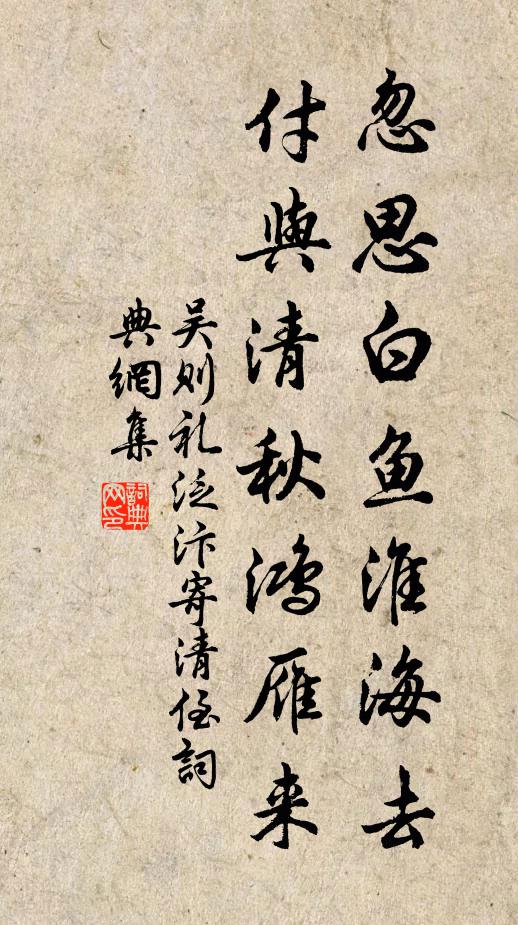 忽思白鱼淮海去
付與清秋鴻雁来
吴则礼泛汴寄清侄詞
典網集
詞典网印